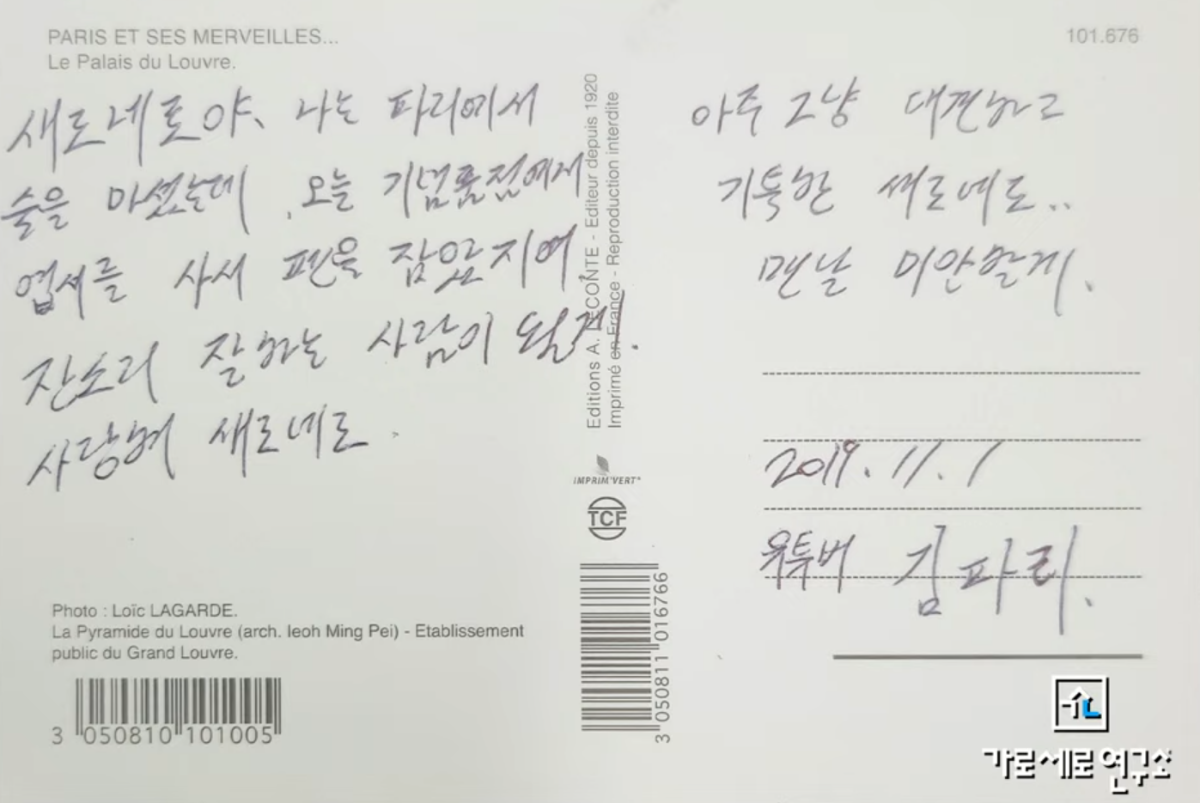 PARIS ET SES MERVEILLES...
Le Palais du Louvre.
101.676
새로네로야, 나는 파리에서
술을 마셨는데, 오늘 기념품점에서
엽서를 사서 펜을 잡았지여
잔소리 잘하는 사람이 될게.
사랑해 새로네로
아주 그냥 대견하고
기특한 새로네로..
맨날 미안할게.
2019.11.1
유투버 김파리.
Editions A. LECONTE - Editeur depuis 1920
Imprimé en France - Reproduction interdite
IMPRIM'VERT®
TCF
3 050811 016766
Photo : Loïc LAGARDE.
La Pyramide du Louvre (arch. Ieoh Ming Pei) - Etablissement
public du Grand Louvre.
3 050810 101005
가로세로연구소